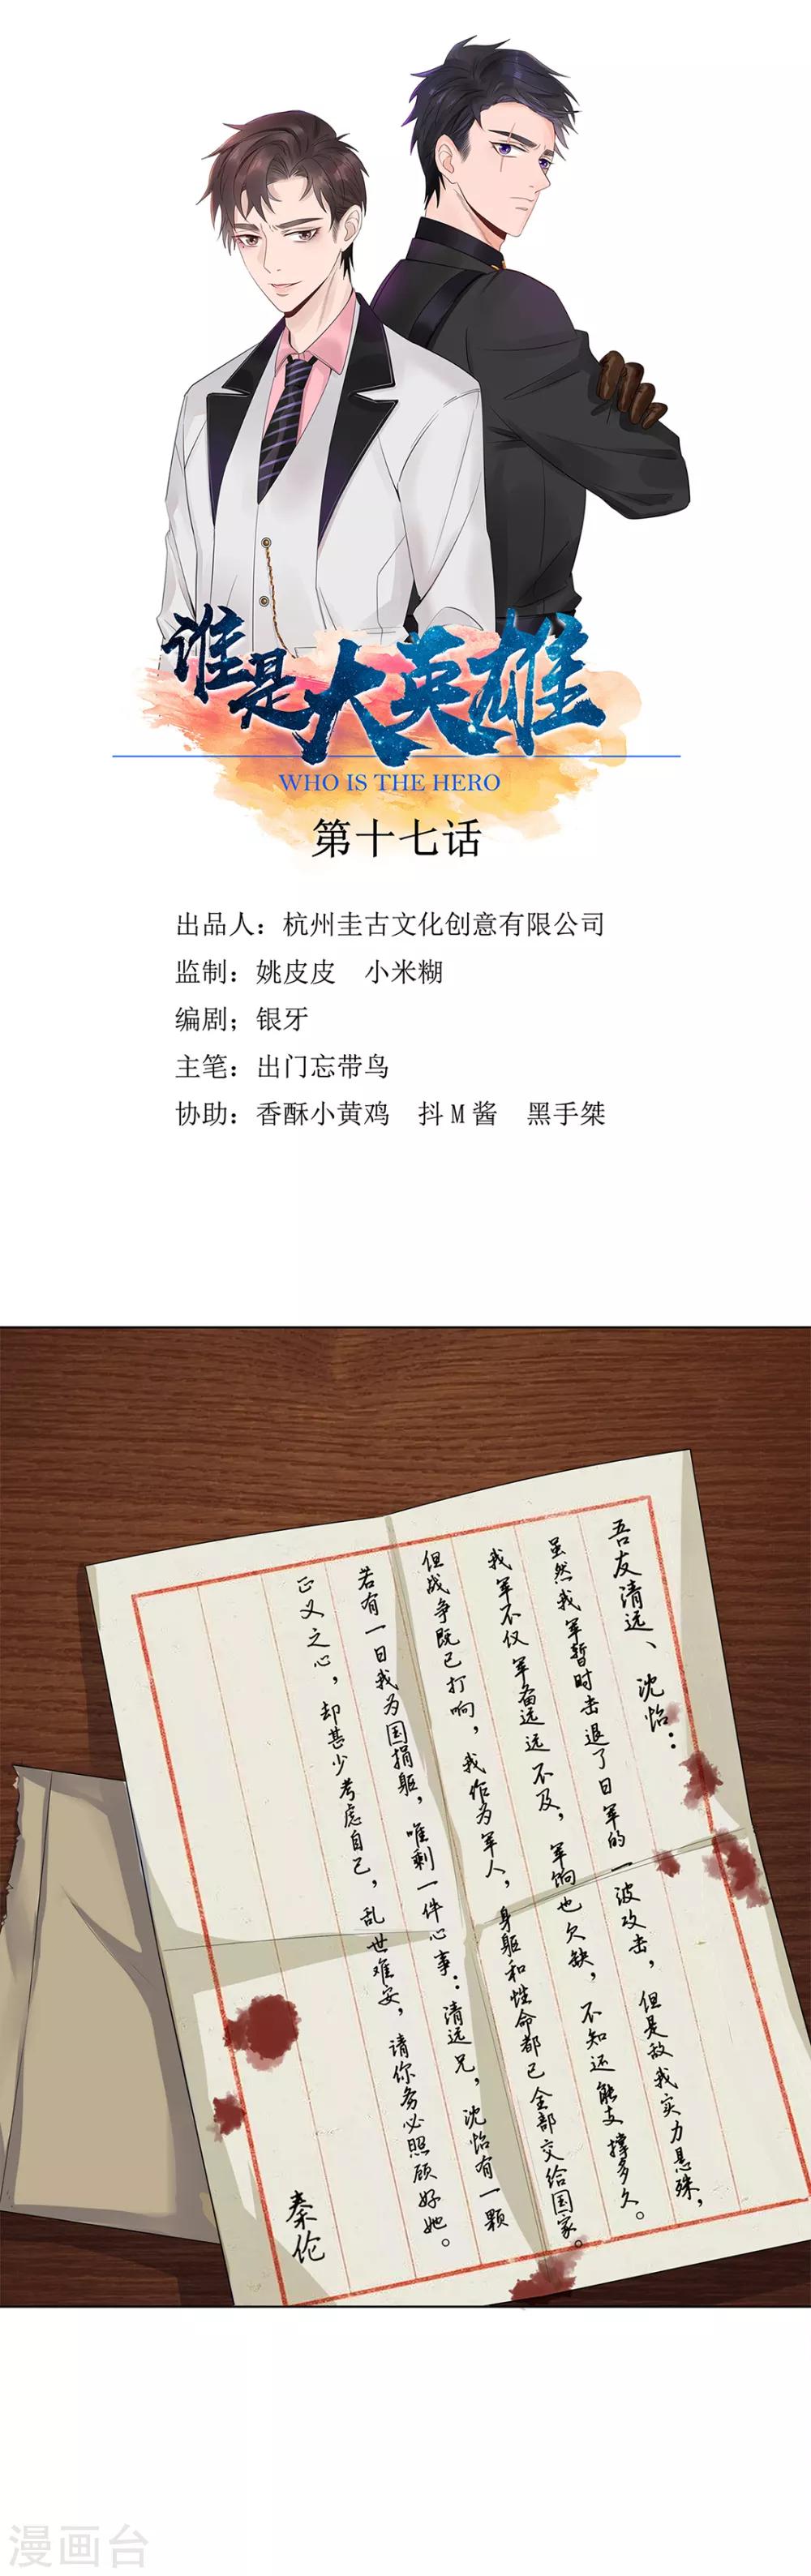 谁是大英雄
WHO IS THE HERO
第十七话
出品人：杭州圭古文化创意有限公司
监制：姚皮皮　小米糊
编剧；银牙
主笔：出门忘带鸟
协助：香酥小黄鸡　抖M酱　黑手桀
吾友清远、沈怡：
虽然我军暂时击退了日军的一波攻击，但是敌我实力悬殊，
我军不仅军备远远不及，军饷也欠缺，不知还能支撑多久。
但战争既已打响，我作为军人，身躯和性命都已全部交给国家。
若有一日我为国捐躯，唯剩一件心事：清远兄，沈怡有一颗
正义之心，却甚少考虑自己，乱世难安，请你务必照顾好她。
秦伦
漫画台